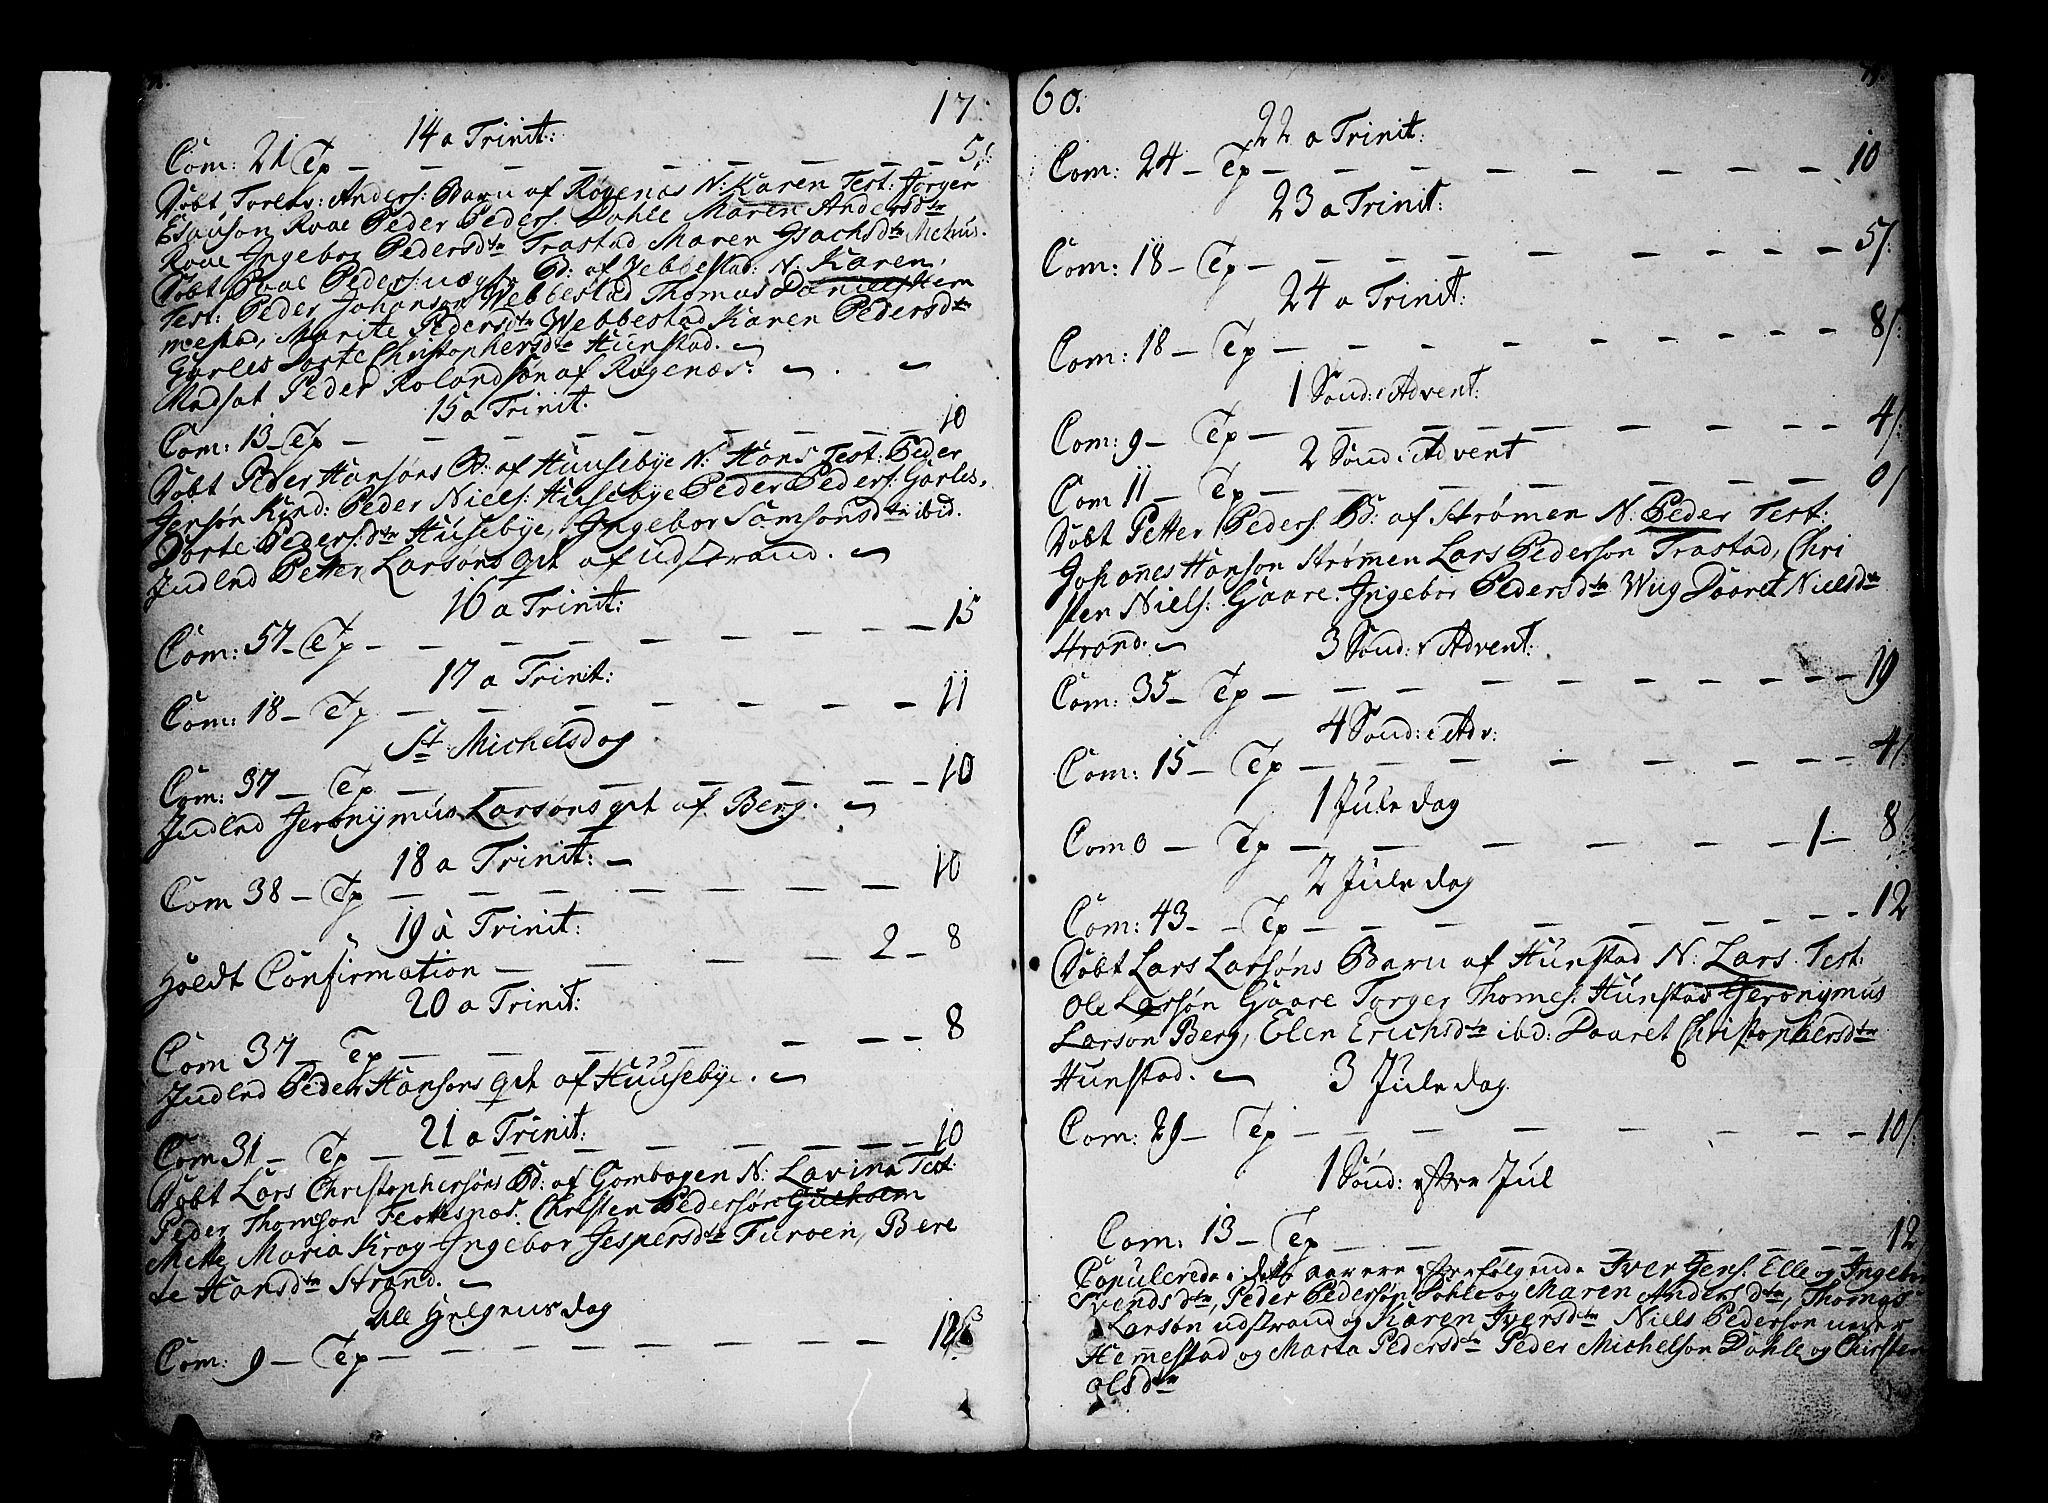 17
14 a Trinit:
Com: 21 Tp — — — — — — — — 5/:
Døbt Anders: Barn af Røgenæs N: Karen Test: Torger
Esauson Roae Peder Peders: Dohle Maren Andersdtr
Roae Ingebor Pedersdtr Trastad Maren Isachsdtr Melhus.
Døbt Roae Peders: B: af Vebbestad: N: Karen.
Test: Peder Johanson Webbestad Thomas Daniels Hem
mestad, Marite Pedersdtr Webbestad Karen Pedersdtr
Garles Dorte Christophersdtr Hunstad.
Madsat Peder Rolandson af Røgenæs:
15 a Trinit:
Com: 13 Tp — — — — — — — 10
Døbt Peder Hansøns B: af Huusebye N: Hans Test: Peder
Jensøn Kind: Peder Niels: Husebye Peder Peders: Garles,
Dorte Peders:dtr Husebye, Ingebor Samsonsdtr ibid.
Indled Petter Larsøns qvt af udstrand.
16 a Trinit:
Com: 57 Tp — — — — — — — 15
17 a Trinit:
Com: 18 — Tp — — — — — — — 11
St Michelsdag
Com: 37 — Tp — — — — — — — 10
Indled Jeronymus Larsøns qvt af Berg.
18 a Trinit: —
Com 38 — Tp — — — — — — — 10
19 a Trinit:
Holdt Confirmation — — — — 2 — 8
20 a Trinit:
Com 37 — Tp — — — — — — — 8
Indled Peder Hansøns qvt af Huusebye.
21 a Trinit:
Com 31 — Tp — — — — — — — 10
Døbt Lars Christophersøns B: af Gombogen N: Lavina Test:
Peder Thomson Flottesnæs. Christen Pedersøn Gulholm
Mette Maria Krog Ingebor Jespersdtr Furoen, Bere
te Hansdtr Strand.
Alle Helgens dag
Com: 9 — Tp — — — — — — — 12
60.
22 a Trinit:
Com: 24 — Tp — — — — — — — 10
23 a Trinit:
Com: 18 — Tp — — — — — — — 5/:
24 a Trinit:
Com: 18 — Tp — — — — — — — 8/:
1 Sönd: i Advent:
Com: 9 — Tp — — — — — — — 4/:
2 Sönd: i Advent
Com 11 — Tp — — — — — — — 0/
Døbt Petter Peders: B: af Strømen N: Peder Test:
Johannes Hanson Strømen Lars Pederson Trastad, Chri
sten Niels: Gaare. Ingebor Pedersdtr Wiig Daaret Nielsdtr
Strand.
3 Sönd: i Advent:
Com: 35 — Tp — — — — — — — 19
4 Sönd: i Adv:
Com: 15 — Tp — — — — — — — 4/:
1 Jule dag
Com 0 — Tp — — — — — — 1 — 8/:
2 Jule dag
Com: 43 — Tp — — — — — — — 12
Døbt Lars Larsøns Barn af Hunstad N: Lars. Test:
Ole Larsøn Gaare Torger Thomes: Hunstad Jeronymus
Larson Berg, Elen Erichsdtr ibd: Daaret Christophersdtr
Hunstad.
3 Jule dag.
Com: 29 — Tp — — — — — — — 10/:
1 Sönd: efter Jul
Com: 13 — Tp — — — — — — — 12/
Copulerede i dette aar ere efterfølgende Iver Jens: Elle og Ingebor
Svendsdtr, Peder Pedersøn Dohle og Maren Andersdtr, Thomas
Larsøn udstrand og Karen Iversdtr Niels Pederson
Hemestad og Marta Pedersdtr Peder Michelson Dahle og Chirsten
olsdtr